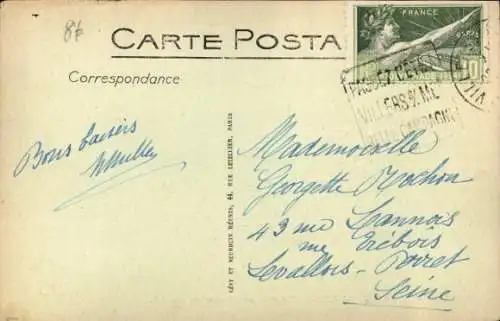 8f
CARTE POSTA
Correspondance
FRANCE
PARIS
10
PASSEZ L'ÉTÉ
VILLERS S/ M
BELLE CAMPAGNE
Bons baisers
Mademoiselle
Georgette Rochon
43 rue Lannois
rue Trébois
Levallois-Perret
Seine
LÉVY ET NEURDEIN RÉUNIS, 44, RUE LETELLIER, PARIS